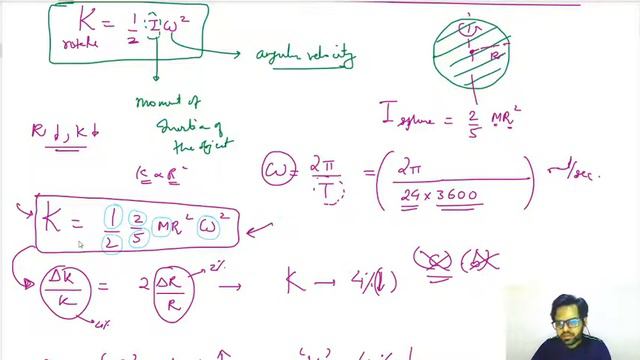 K = 1/2 I ω²
rotate
angular velocity
moment of
Inertia of
the object
R
I sphere = 2/5 MR²
R ↓, K ↓
K ∝ R²
ω = 2π / T = ( 2π / 24 × 3600 ) rad/sec.
K = 1/2 2/5 MR² ω²
ΔK/K = 2 ΔR/R → K → 4% (↓)
2%
4%